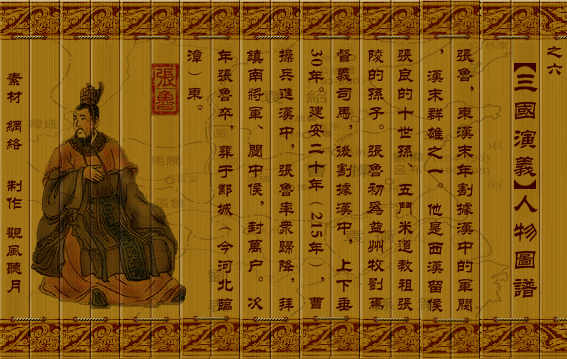 之六
【三國演義】人物圖譜
張魯,東漢末年割據漢中的軍閥
,漢末群雄之一。他是西漢留侯
張良的十世孫、五鬥米道教祖張
陵的孫子。張魯初爲益州牧劉焉
督義司馬,後割據漢中,上下垂
30年。建安二十年(215年),曹
操兵進漢中,張魯率衆歸降,拜
鎮南將軍、閬中侯,封萬户。次
年張魯卒,葬于鄴城(今河北臨
漳)東。
張魯
素材 網絡 制作 觀風聽月